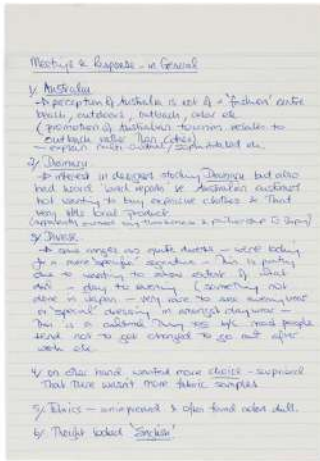 Meetings & Response - in General
1/ Australia
→ perception of Australia is not of a 'fashion' centre
beach, outdoors, outback, color etc.
(promotion of Australian tourism relates to
outback rather than cities)
- explain multi cultural / sophisticated etc.
2/
→ interest in designers stocking but also
had heard 'word reports' re Australian customers
not wanting to buy expensive clothes & that
very little local product.
3/ Diverse
→ some ranges too quite diverse - were looking
for a more 'specific' signature - This is partly
due to wanting to show extent of what
do - day to evening (something not
done in Japan - very rare to see evening wear
or 'special' dressing in amongst daywear -
This is a cultural thing too b/c most people
tend not to get changed to go out after
work etc.
4/ on other hand wanted more choice - surprised
that there wasn't more fabric samples
5/ Fabrics - unimpressed & often found colors dull.
6/ Thought looked 'English'